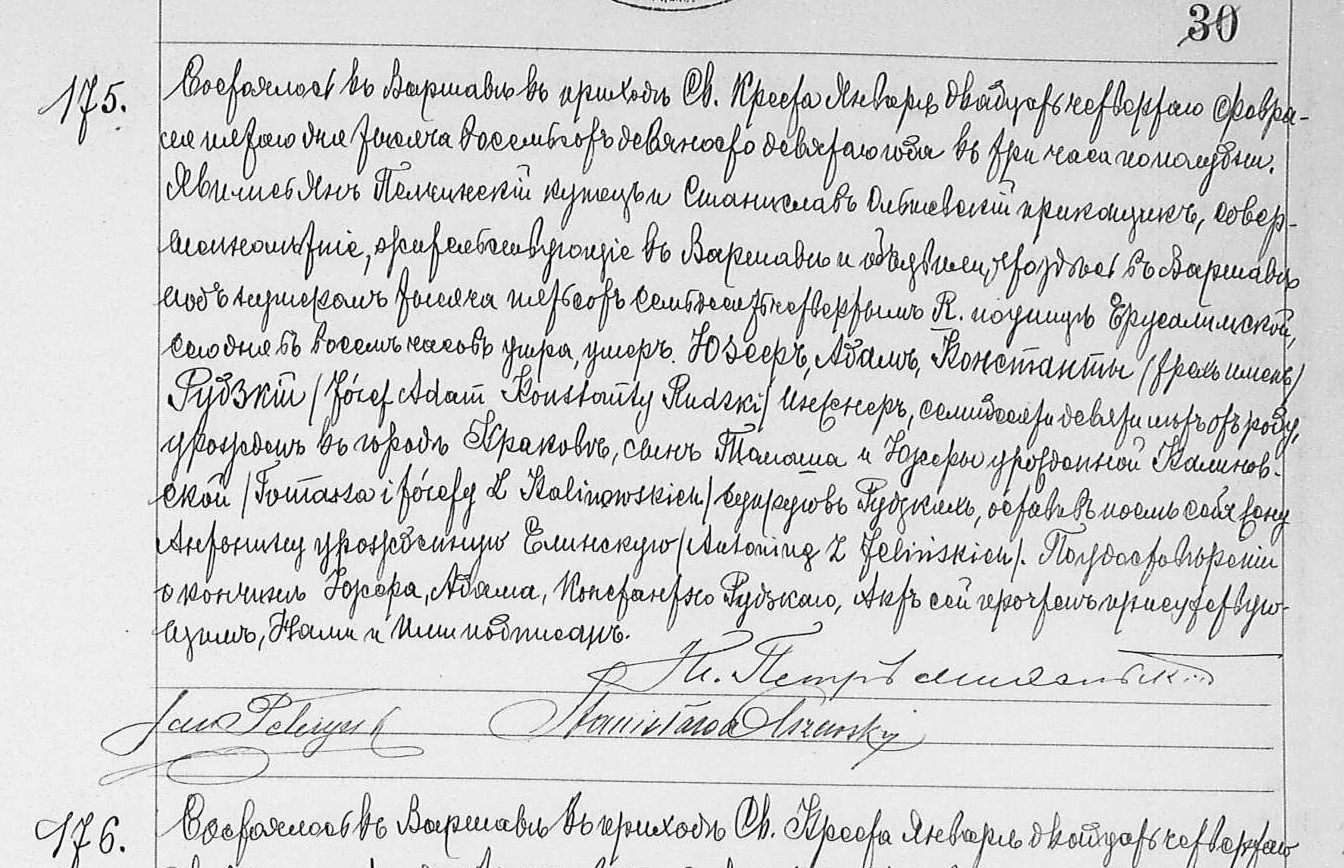 30
175. Состоялось въ Варшавѣ въ приходѣ Св. Креста Января двадцать четвертаго Февра-
ля пятаго дня тысяча восемьсотъ девяносто девятаго года въ три часа пополудни.
Явились Янъ Пельчинскій купецъ и Станиславъ Ольшевскій прикащикъ, совер-
шеннолѣтніе, жительствующіе въ Варшавѣ и объявили, что здѣсь въ Варшавѣ
подъ нумеромъ тысяча пятьсотъ семьдесятъ четвертымъ R. по улицѣ Ерусалимской,
сего дня въ восемь часовъ утра, умеръ Юзефъ, Адамъ, Константы /трехъ именъ/
Рудзкій /Józef Adam Konstanty Rudzki/ Инженеръ, семидесяти девяти лѣтъ отъ роду,
урожденъ въ городѣ Краковѣ, сынъ Томаша и Юзефы урожденной Калинов-
ской /Tomasza i Józefy z Kalinowskich/ супруговъ Рудзкихъ, оставивъ послѣ себя жену
Антонину урожденную Елинскую /Antoninę z Jelińskich/. По удостовѣреніи
о кончинѣ Юзефа, Адама, Константаго Рудзкаго, Актъ сей прочтенъ присутствую-
щимъ, Нами и Ими подписанъ.
Кс. Петръ
Jan Pelczyński Stanisław Olszewski
176. Состоялось въ Варшавѣ въ приходѣ Св. Креста Января двадцать четвертаго